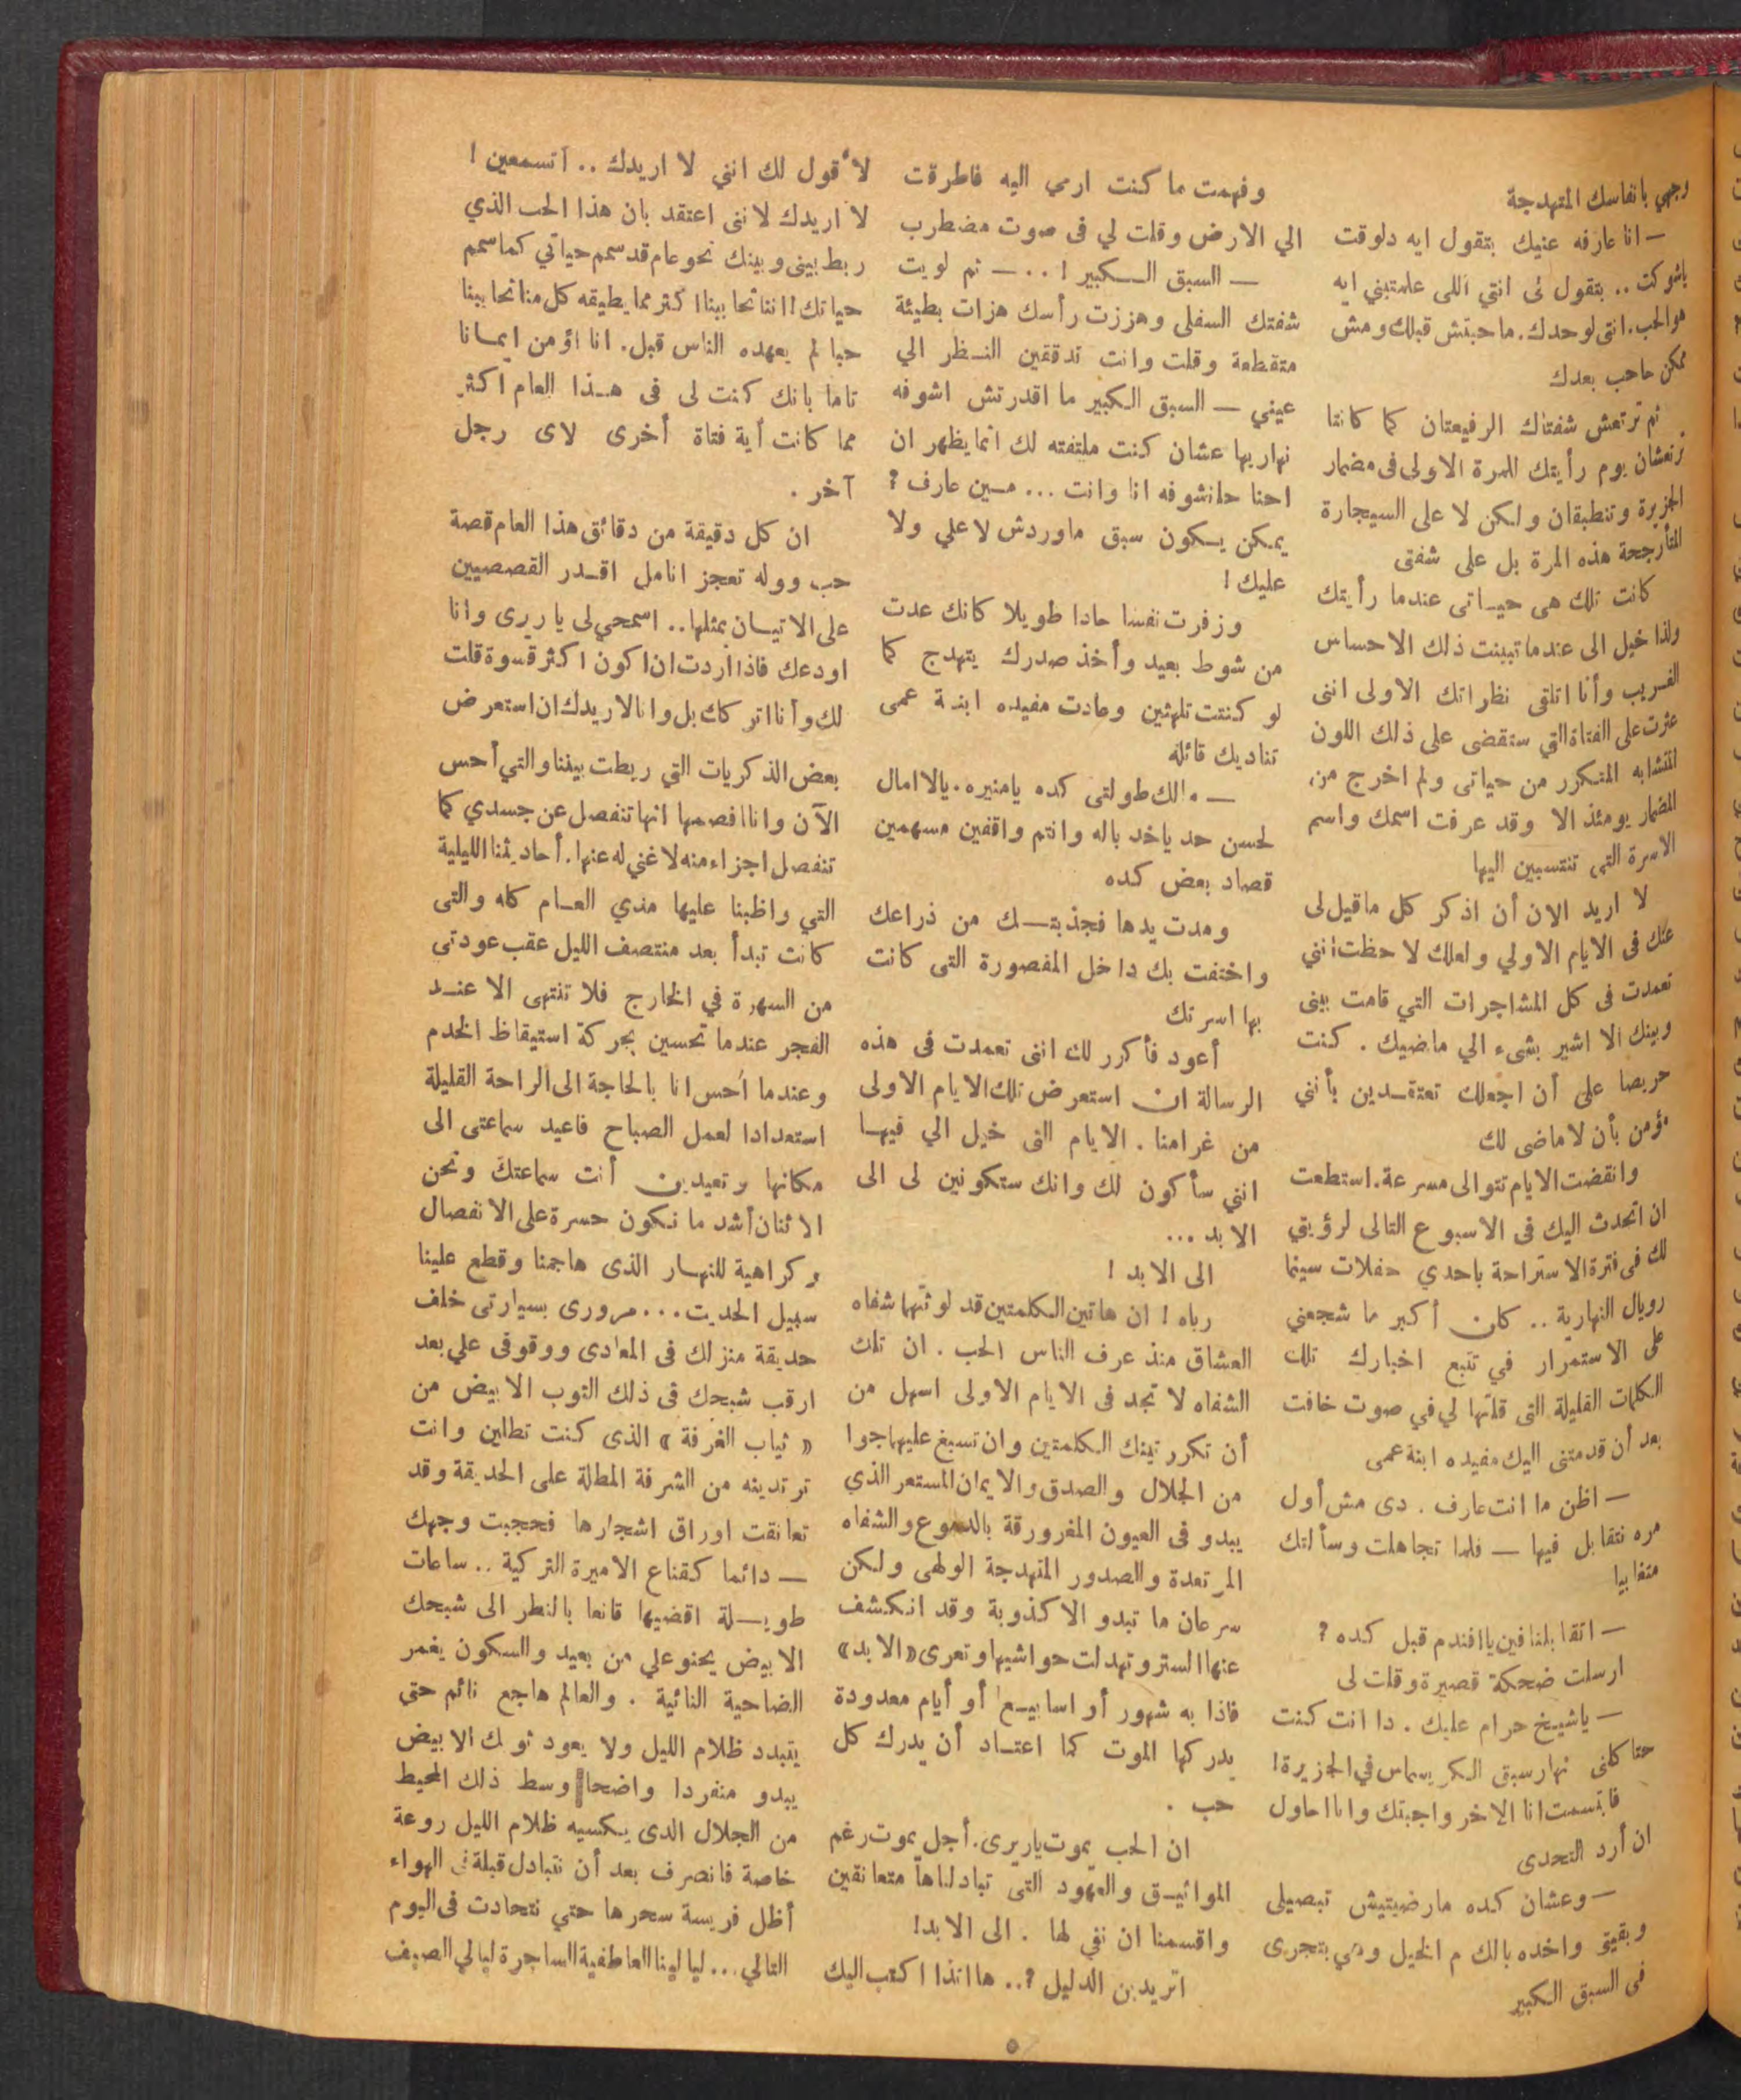 وجهي بانفاسك المتهدجة
— انا عارفه عنيك بتقول ايه دلوقت
ياشوكت .. بتقول لى انتي اللى علمتيني ايه
هو الحب. انتى لوحدك. ما حبتش قبلك ومش
ممكن حاحب بعدك
ثم ترتعش شفتاك الرفيعتان كما كانتا
ترتعشان يوم رأيتك للمرة الاولى فى مضمار
الجزيرة وتنطبقان ولكن لا على السيجارة
المتأرجحة هذه المرة بل على شفتى
كانت تلك هى حيـاتى عندما رأيتك
ولذا خيل الى عندما تبينت ذلك الاحساس
الغريب وأنا اتلقى نظراتك الاولى اننى
عثرت على الفتاة التي ستقضى على ذلك اللون
المتشابه المتكرر من حياتى ولم اخرج من
المضمار يومئذ الا وقد عرفت اسمك واسم
الاسرة التى تنتسبين اليها
لا اريد الان أن اذكر كل ما قيل لى
عنك فى الايام الاولي ولعلك لاحظت انني
تعمدت فى كل المشاجرات التي قامت بينى
وبينك الا اشير بشىء الي ماضيك . كنت
حريصا على أن اجعلك تعتقـدين بأنني
مؤمن بأن لا ماضى لك
وانقضت الايام تتوالى مسرعة. استطعت
ان اتحدث اليك فى الاسبوع التالى لرؤيتي
لك فى فترة الاستراحة باحدي حفلات سينما
رويال النهارية .. كان أكبر ما شجعني
على الاستمرار في تتبع اخبارك تلك
الكلمات القليلة التى قلتها لي في صوت خافت
بعد أن قدمتنى اليك مفيده ابنة عمى
— اظن ما انت عارف . دى مش أول
مره نتقابل فيها — فلما تجاهلت وسألتك
متغابيا
— اتقابلنا فين يا افندم قبل كده ؟
ارسلت ضحكة قصيرة وقلت لى
— ياشيخ حرام عليك . دا انت كنت
حتاكلنى نهار سبق الكريسماس في الجزيرة !
فابتسمت انا الاخر واجبتك وانا احاول
ان أرد التحدى
— وعشان كده مارضيتيش تبصيلى
وبقيتي واخده بالك م الخيل وهي بتجرى
فى السبق الكبير
وفهمت ما كنت ارمي اليه فاطرقت
الي الارض وقلت لي فى صوت مضطرب
— السبق الـكبير ! .. — ثم لويت
شفتك السفلى وهززت رأسك هزات بطيئة
متقطعة وقلت وانت تدققين النـظر الي
عيني — السبق الكبير ما اقدرتش اشوفه
نهاريها عشان كنت ملتفته لك انما يظهر ان
احنا حانشوفه انا وانت ... مـين عارف ؟
يمكن يـكون سبق ماوردش لا علي ولا
عليك !
وزفرت نفسا حادا طويلا كانك عدت
من شوط بعيد وأخذ صدرك يتهدج كما
لو كنتت تلهثين وعادت مفيده ابنـة عمى
تناديك قائله
— مالك طولتى كده يامنيره . يالا امال
لحسن حد ياخد باله وانتم واقفين مسهمين
قصاد بعض كده
ومدت يدها فجذبتـك من ذراعك
واختفت بك داخل المقصورة التى كانت
بها اسرتك
أعود فأكرر لك اننى تعمدت فى هذه
الرسالة ان استعرض تلك الايام الاولى
من غرامنا . الايام التى خيل الي فيهـا
انني سأكون لك وانك ستكونين لى الى
الابد ...
الى الابد !
رباه ! ان هاتين الـكلمتين قد لوثتهما شفاه
العشاق منذ عرف الناس الحب . ان تلك
الشفاه لا تجد فى الايام الاولى اسهل من
أن تكرر تينك الـكلمتين وان تسبغ عليهما جوا
من الجلال والصدق والايمان المستعر الذي
يبدو فى العيون المغرورقة بالدموع والشفاه
المرتعدة والصدور المتهدجة الولهى ولكن
سرعان ما تبدو الاكذوبة وقد انكشف
عنها الستر وتهدلت حواشيها وتعرى «الابد»
فاذا به شهور أو اسابيـع أو أيام معدودة
يدركها الموت كما اعتـاد أن يدرك كل
حب .
ان الحب يموت ياريرى. أجل يموت رغم
المواثيـق والعهود التى تبادلناها متعانقين
واقسمنا ان نفي لها . الى الابد !
اتريدين الدليل ؟ .. هاانذا اكتب اليك
لأقول لك انني لا اريدك .. اتسمعين !
لا اريدك لاننى اعتقد بان هذا الحب الذي
ربط بينى وبينك نحو عام قد سمم حياتي كما سمم
حياتك ! اننا تحاببنا اكثر مما يطيقه كل منا تحاببنا
حبا لم يعهده الناس قبل. انا اؤمن ايمـانا
تاما بانك كنت لى فى هـذا العام اكثر
مما كانت أية فتاة أخرى لاى رجل
آخر .
ان كل دقيقة من دقائق هذا العام قصة
حب ووله تعجز انامل اقـدر القصصيين
على الاتيـان بمثلها .. اسمحي لى ياريرى وانا
اودعك فاذا اردت ان اكون اكثر قسوة قلت
لك وأنا اتركك بل وانا لا اريدك ان استعرض
بعض الذكريات التي ربطت بيننا والتي أحس
الآن وانا افصمها انها تنفصل عن جسدي كما
تنفصل اجزاء منه لا غني له عنها. أحاديثنا الليلية
التي واظبنا عليها مدي العـام كله والتى
كانت تبدأ بعد منتصف الليل عقب عودتى
من السهرة في الخارج فلا تنتهى الا عنـد
الفجر عندما تحسين بحركة استيقاظ الخدم
وعندما أحس انا بالحاجة الى الراحة القليلة
استعدادا لعمل الصباح فاعيد سماعتى الى
مكانها وتعيدين أنت سماعتك ونحن
الاثنان أشد ما نكون حسرة على الانفصال
وكراهية للنهـار الذى هاجمنا وقطع علينا
سبيل الحديث ... مرورى بسيارتى خلف
حديقة منزلك فى المعادى ووقوفى علي بعد
ارقب شبحك فى ذلك الثوب الابيض من
« ثياب الغرفة » الذى كنت تطلين وانت
ترتدينه من الشرفة المطلة على الحديقة وقد
تعانقت اوراق اشجارها فحجبت وجهك
— دائما كقناع الاميرة التركية .. ساعات
طويـلة اقضيها قانعا بالنظر الى شبحك
الابيض يحنو علي من بعيد والسكون يغمر
الضاحية النائية . والعالم هاجع نائم حتي
يتبدد ظلام الليل ولا يعود ثوبك الابيض
يبدو منفردا واضحا وسط ذلك المحيط
من الجلال الذى يـكسيه ظلام الليل روعة
خاصة فانصرف بعد أن نتبادل قبلة فى الهواء
أظل فريسة سحرها حتي نتحادث فى اليوم
التالي ... ليالينا العاطفية الساجرة ليالي الصيف